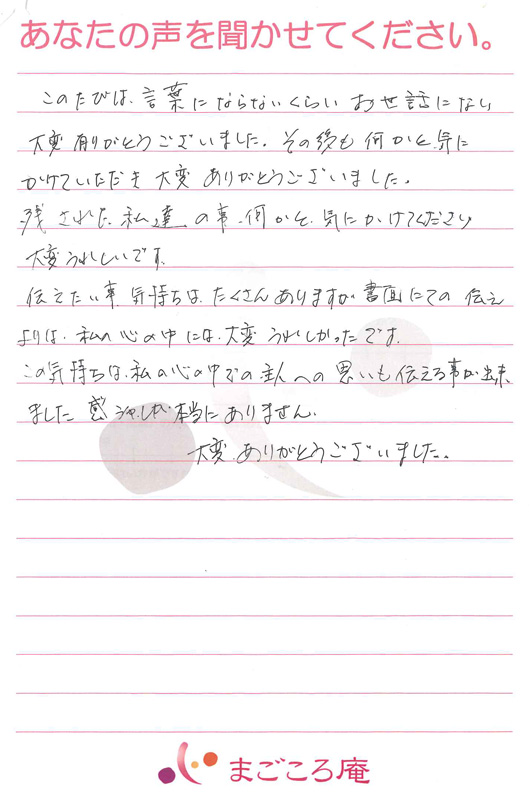 あなたの声を聞かせてください。
このたびは、言葉にならないくらい お世話になり
大変 有りがとうございました。その後も 何かと、気に
かけていただき 大変 ありがとうございました。
残された、私達 の事、何かと、気に かけてくださり
大変 うれしいです。
伝えたい事、気持ちは、たくさん ありますが 書面にての 伝え
よりは、私の 心の中には、大変 うれしかったです。
この気持ちは、私の心の中での 主人への 思いも 伝える事が 出来、
ました 感シャしか 本当に ありません。
大変、ありがとうございました。
まごころ庵